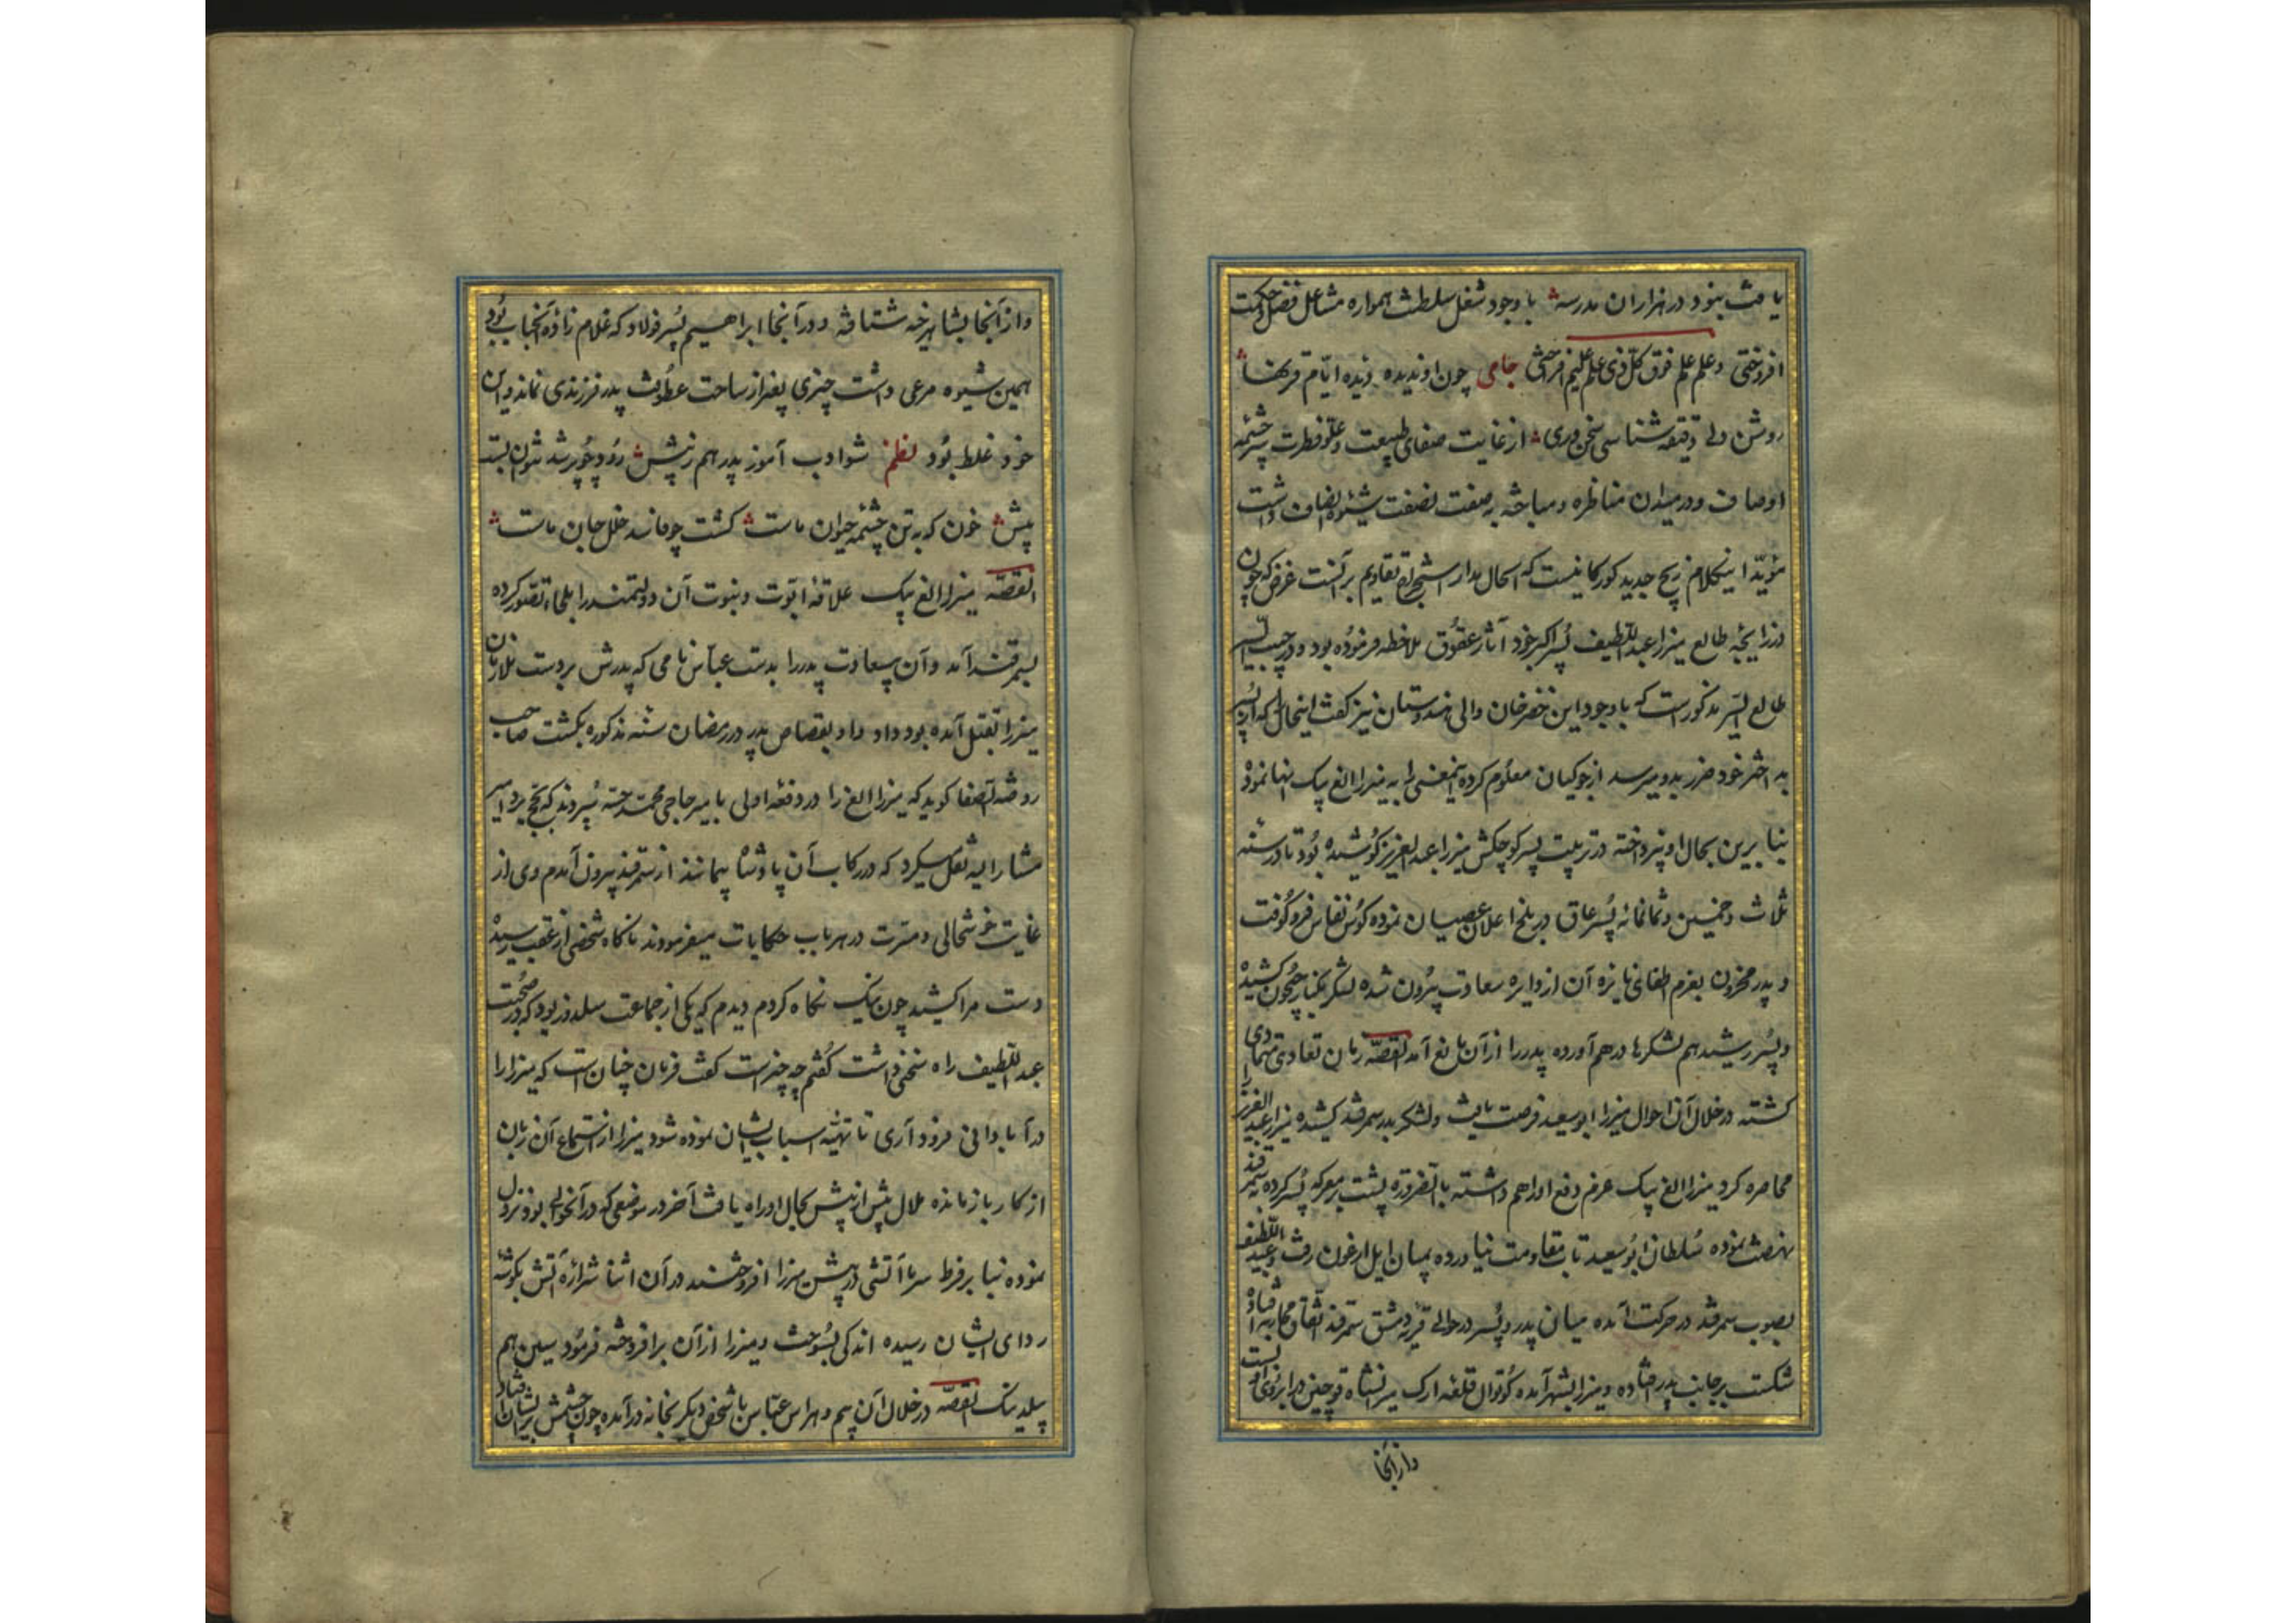 یافت بنود در هزاران مدرسه با وجود شغل سلطنت همواره مشاعل فضل و حکمت
افروختی و علم علم فوق کل ذی علم علیم افراختی جامی چون او ندیده دیده ایام قرنها
روشن دلی دقیقه شناسی سخن وری از غایت صفای طبیعت و علو فطرت سر چشمه
اوصاف و در میدان مناظره و مباحثه به صفت نصفت شیوه انصاف داشت
مؤید اینکلام زیج جدید کورکانیست که الحال مدار استخراج تقاویم بر آنست غرض که چون
در زایجه طالع میرزا عبداللطیف پسر اکبر خود آثار عقوق ملاحظه فرموده بود و در حبیب السیر
طالع السیر مذکور است که با وجود این خضر خان والی هندوستان نیز گفت اینحال که از پسر
بد اختر خود ضرر بدو میرسد از جوکیان معلوم کرده اینمعنی را به میرزا الغ بیک انها نمود
بنا برین بحال او نپرداخته در تربیت پسر کوچکش میرزا عبدالعزیز کوشیده بود تا در سنه
ثلاث و خمسین و ثمانمائه پسر عاق در بلخ اعلان عصیان نموده کوس نفاس فرو کوفت
و پدر محزون بعزم اطفای نایره آن از دایره سعادت بیرون شده لشکر بکنار جیحون کشیده
و پسر رشید هم لشکرها درهم آورده پدر را از آن مانع آمد القصه زمان تعادی متمادی
کشته در خلال آن احوال میرزا ابو سعید فرصت یافت و لشکر بدر سمرقند کشیده میرزا عبدالعزیز را
محاصره کرد میرزا الغ بیک عزم دفع او را هم داشته بالضروره پشت بر معرکه پسر کرده به سمرقند
نهضت نموده سلطان ابو سعید تاب مقاومت نیاورده بمیان ایل ارغون رفت و عبداللطیف
بصوب سمرقند در حرکت آمده میان پدر و پسر در حوالی قریه دمشق سمرقند اتفاق محاربه افتاده
شکست بر جانب پدر افتاده و میرزا بشهر آمده کوتوال قلعه ارک میرانشاه قوچین در بر روی او بست
و از آنجا
و از آنجا بشاهرخیه شتافته و در آنجا ابراهیم پسر فولاد که غلام زاده آنجناب بود
همین شیوه مرعی داشت چیزی بغیر از ساحت عطوفت پدر فرزندی نماند و این
خود غلط بود نظم شو ادب آموز پدر هم ز پیش رود چو پر شد نتوان بست
پیش خون که به تن چشمه حیوان ماست کشت چو فاسد خلل جان ماست
القصه میرزا الغ بیک علاقه ابوت و بنوت آن دولتمند را ملجاء تصور کرده
بسمرقند آمد و آن سعادت پدر را بدست عباس نامی که پدرش بر دست ملازمان
میرزا بقتل آمده بود داد و او بقصاص پدر در رمضان سنه مذکوره بکشت صاحب
روضة الصفا کوید که میرزا الغ را در دفعه اولی با میر حاجی محمد خسته سپردند که بحج برد امیر
مشار الیه نقل میکرد که در رکاب آن پادشاه پیمانند از سمرقند بیرون آمدم وی از
غایت خوشحالی و مسرت در هر باب حکایات میفرمودند ناکاه شخصی از عقب رسیده
دست مرا کشید چون نیک نکاه کردم دیدم که یکی از جماعت سلدوز بود که در صحبت
عبداللطیف راه سخن داشت گفتم چه چیز است گفت فرمان چنان است که میرزا را
در آبادانی فرود آری تا تهیه اسباب ایشان نموده شود میرزا از استماع آن زبان
از کار باز مانده ملال بیش از پیش بحال او راه یافت آخر در موضعی که در آنحوالی بود نزول
نموده بنا بر فرط سرما آتشی در پیش میرزا افروختند در آن اثنا شراره آتش بکوشه
ردای ایشان رسیده اندکی بسوخت و میرزا از آن برافروخته فرمود سین هم
بیلدینک القصه در خلال آن بیم و هراس عباس با شخص دیکر بخانه در آمده چون چشمش بر ایشان افتاد